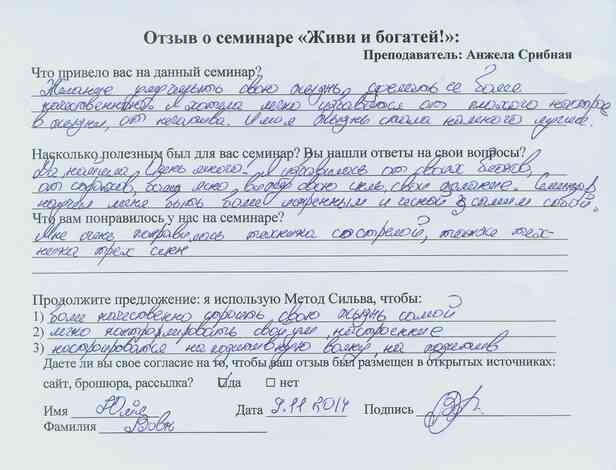 Отзыв о семинаре «Живи и богатей!»:
Преподаватель: Анжела Срибная
Что привело вас на данный семинар?
Желание улучшить свою жизнь, сделать её более
качественной. Я хотела легко избавиться от плохого настроя
в жизни, от негатива. И моя жизнь стала намного лучше.
Насколько полезным был для вас семинар? Вы нашли ответы на свои вопросы?
Да нашла. Очень много! Я избавилась от своих блоков,
от страхов, более ясно вижу свою цель, свои желания. Семинар
научил меня быть более искренным и честной с самим собой.
Что вам понравилось у нас на семинаре?
Мне очень понравилась техника со стрелой, также тех-
ника трех сцен
Продолжите предложение: я использую Метод Сильва, чтобы:
1) Более качественно строить свою жизнь самой
2) легко контролировать свой ум, настроение
3) настроиваться на позитивную волну, на позитив
Даете ли вы свое согласие на то, чтобы ваш отзыв был размещен в открытых источниках:
сайт, брошюра, рассылка? да нет
Имя Юлия Дата 9.11.2014 Подпись
Фамилия